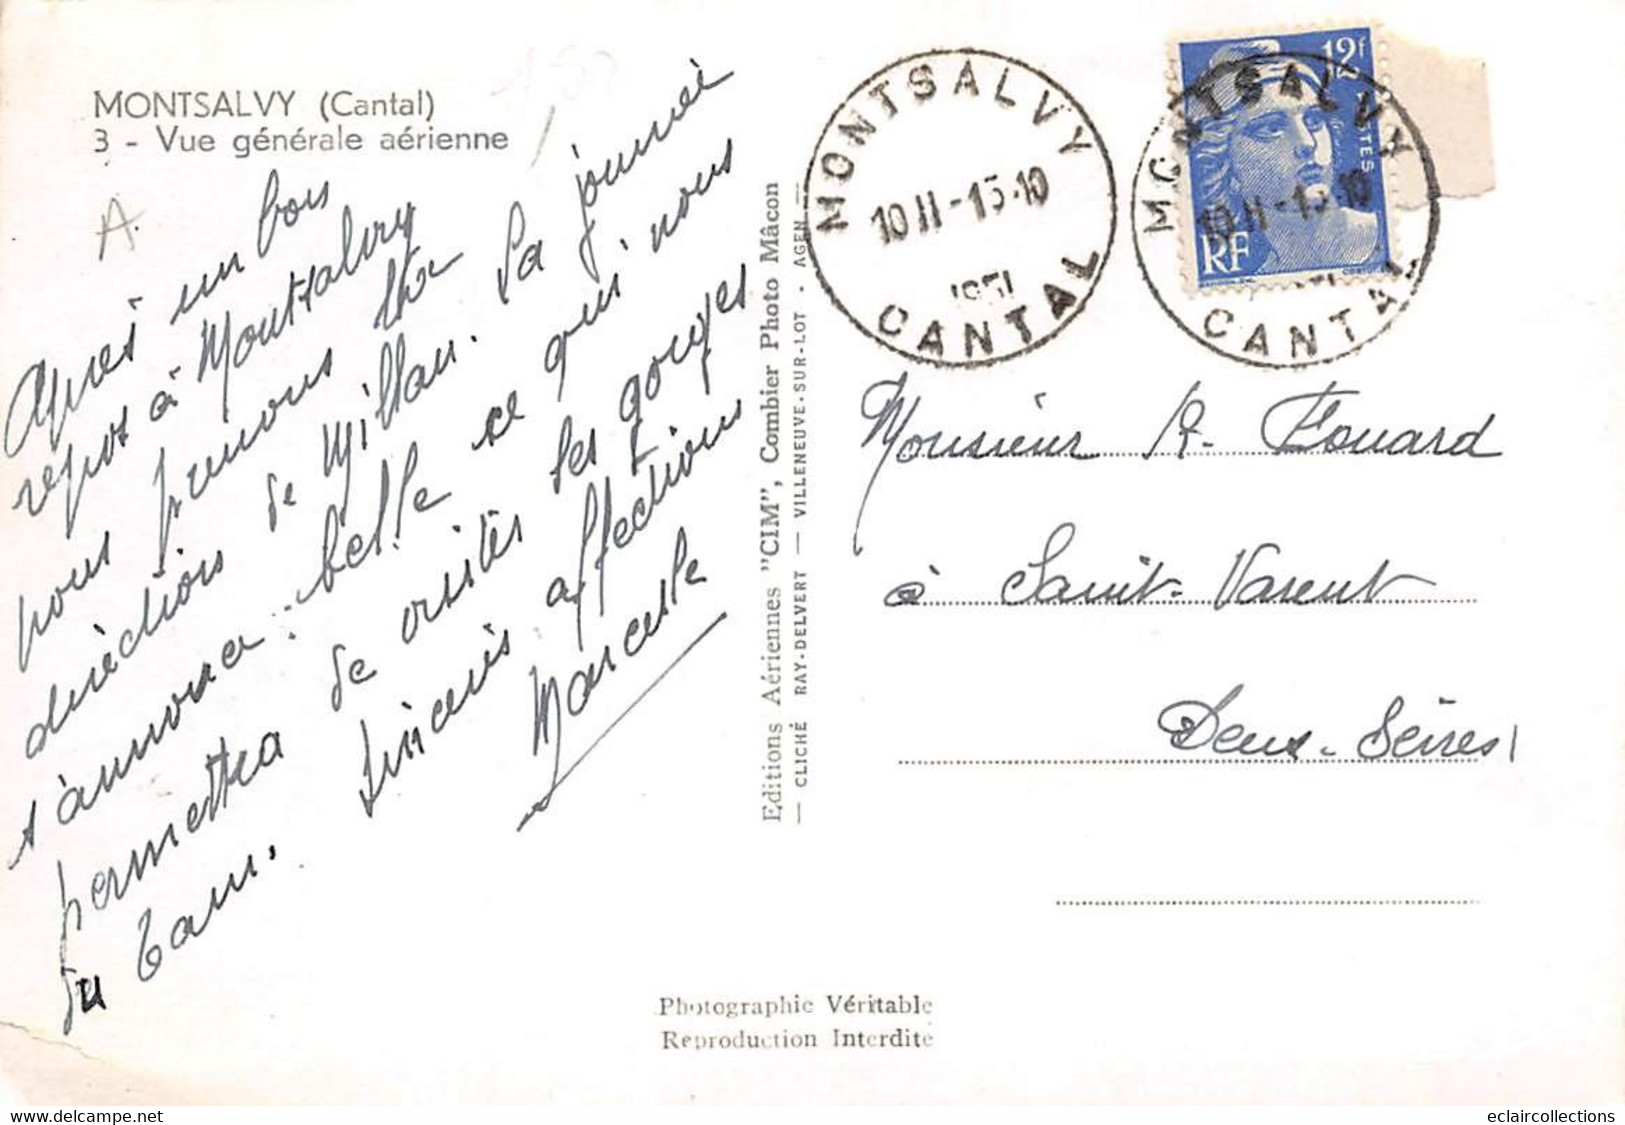 MONTSALVY (Cantal)
3 - Vue générale aérienne
A
Après un bon
repos à Montsalvy
nous prenons la
direction de Millau. La journée
s'annonce belle ce qui nous
permettra de visiter les gorges
du Tarn. Sincères affections
Marcelle
Editions Aériennes "CIM", Combier Photo Mâcon
— CLICHÉ RAY-DELVERT — VILLENEUVE-SUR-LOT - AGEN —
MONTSALVY
10 II - 15.10
1951
CANTAL
12f
POSTES
RF
MONTSALVY
10 II - 15.10
CANTAL
Monsieur R. Fouard
à Saint-Varent
Deux-Sèvres
Photographie Véritable
Reproduction Interdite
eclaircollections